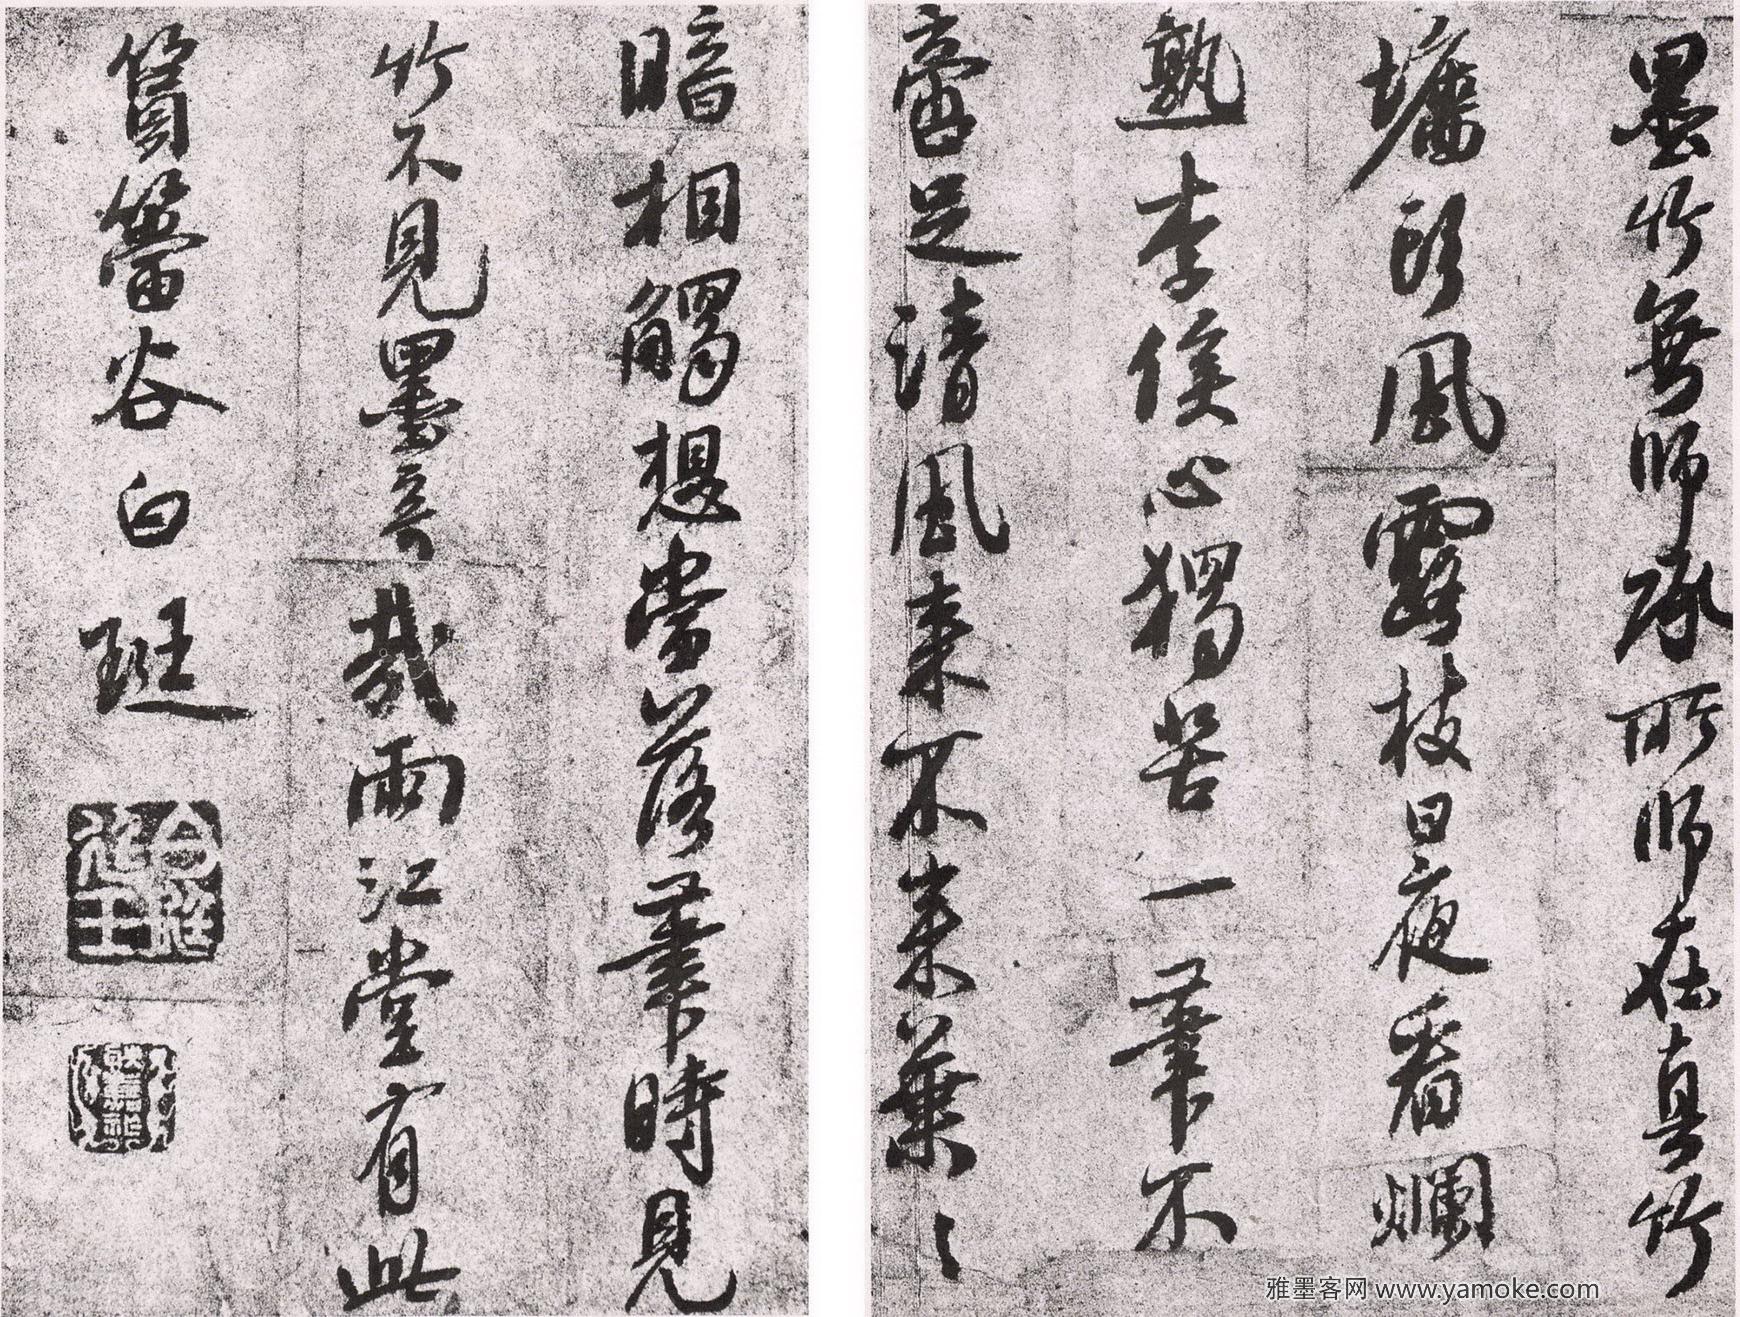 墨竹無師承所師在真竹
墻頭風露枝日夜看爛
熟李侯心獨苦一筆不
啻足清風來不來葉〻
暗相觸想當落筆時見
竹不見墨奇哉雨江堂有此
篔簹谷 白珽
雅墨客网 www.yamoke.com